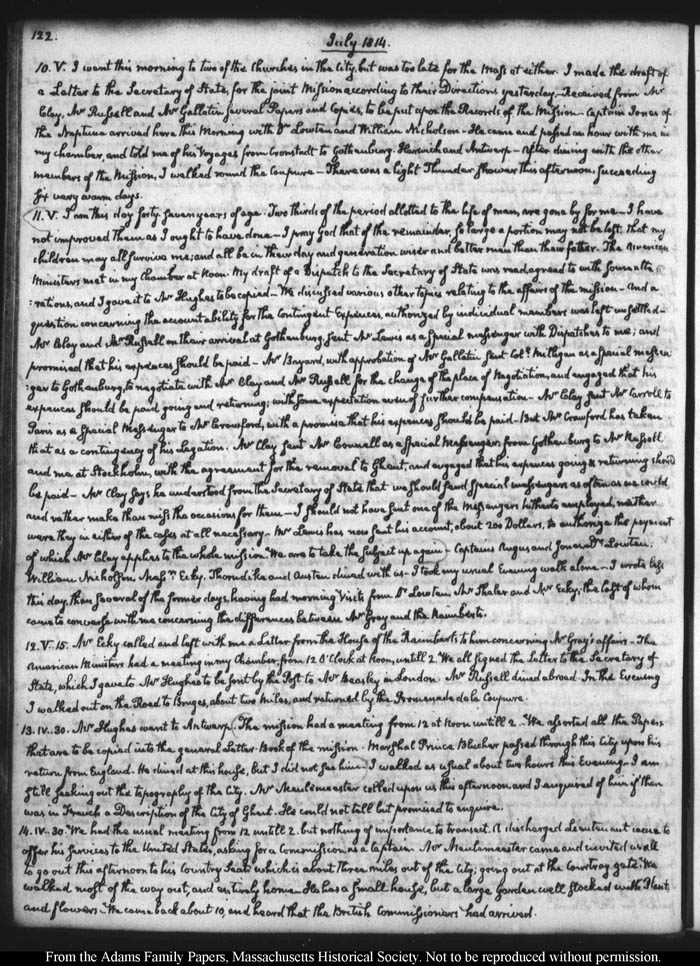 122.
July 1814.
10. V. I went this morning to two of the Churches in the City, but was too late for the Mass at either. I made the draft of
a Letter to the Secretary of State, for the joint Mission according to their Directions yesterday. Received from Mr
Clay, Mr Russell and Mr Gallatin several Papers and Copies, to be put upon the Records of the Mission — Captain Jones of
the Neptune arrived here this Morning with Dr Lowten and William Nicholson — He came and passed an hour with me in
my chamber, and told me of his Voyages from Cronstadt to Gothenburg, Harwich and Antwerp — After dining with the other
members of the Mission, I walked round the Coupure — There was a light Thunder shower this afternoon, succeeding
six very warm days.
11. V. I am this day forty seven years of age. Two thirds of the period allotted to the life of man, are gone by for me — I have
not improved them as I ought to have done — I pray God that of the remainder, so large a portion may not be lost; that my
children may all survive me; and all be in their day and generation wiser and better men than their father. The American
Ministers met in my chamber at Noon. My draft of a Dispatch to the Secretary of State was read, agreed to with some alte
:rations, and I gave it to Mr Hughes to be copied — We discussed various other topics relating to the affairs of the mission — And a
question concerning the accountability for the Contingent Expences, authorized by individual members was left unsettled —
Mr Clay and Mr Russell on their arrival at Gothenburg, sent Mr Lewis as a special messenger with Dispatches to me; and
promised that his expences should be paid — Mr Bayard, with approbation of Mr Gallatin sent Coll. Milligan as a special messen
:ger to Gothenburg, to negotiate with Mr Clay and Mr Russell for the change of the place of Negotiation, and engaged that his
expences should be paid going and returning; with some expectation even of further compensation — Mr Clay sent Mr Carroll to
Paris as a Special Messenger to Mr Crawford, with a promise that his expences should be paid — But Mr Crawford has taken
that as a contingency of his Legation. Mr Clay sent Mr Connell as a special Messenger, from Gothenburg to Mr Russell
and me at Stockholm, with the agreement for the removal to Ghent, and engaged that his expences going & returning should
be paid — Mr Clay says he understood from the Secretary of State that we should send special messengers as often as we could
and rather make than miss the occasions for them — I should not have sent one of the Messengers hitherto employed, neither
were they in either of the cases at all necessary — Mr Lewis has now sent his account, about 200 Dollars, to authorize the payment
of which Mr Clay applies to the whole mission. We are to take the subject up again — Captains Angus and Jones, Dr Lowten,
William Nicholson, Mess.rs Ecky, Thorndike and Austen dined with us — I took my usual Evening walk alone — I wrote less
this day, than several of the former days, having had morning Visits from Dr Lowten, Mr Thaler and Mr Ecky; the last of whom
came to converse with me concerning the differences between Mr Gray and the Raimberts.
12. V. 15. Mr Ecky called and left with me a Letter from the House of the Raimberts to him concerning Mr Gray's affairs — The
American Ministers had a meeting in my Chamber, from 12 O'Clock at Noon, untill 2. We all signed the Letter to the Secretary of
State, which I gave to Mr Hughes to be sent by the Post to Mr Beasley in London. Mr Russell dined abroad. In the Evening
I walked out on the Road to Bruges, about two miles, and returned by the Promenade de la Coupure.
13. IV. 30. Mr Hughes went to Antwerp. The mission had a meeting from 12 at Noon untill 2. We assorted all the Papers
that are to be copied into the general Letter Book of the mission. Marshal Prince Blucher passed through this City upon his
return from England. He dined at this house, but I did not see him — I walked as usual about two hours this Evening — I am
still seeking out the topography of the City. Mr Meulemeester called upon us this afternoon and I enquired of him if there
was in French a Description of the City of Ghent. He could not tell but promised to enquire.
14. IV. 30. We had the usual meeting from 12 untill 2. but nothing of importance to transact. A discharged Lieutenant came to
offer his services to the United States, asking for a Commission as a Captain. Mr Meulemeester came and invited us all
to go out this afternoon to his Country Seat, which is about three miles out of the City; going out at the Courtray gate. We
walked most of the way out, and entirely home. He has a small house, but a large Garden well stocked with Plants
and flowers. We came back about 10, and heard that the British Commissioners had arrived.
From the Adams Family Papers, Massachusetts Historical Society. Not to be reproduced without permission.